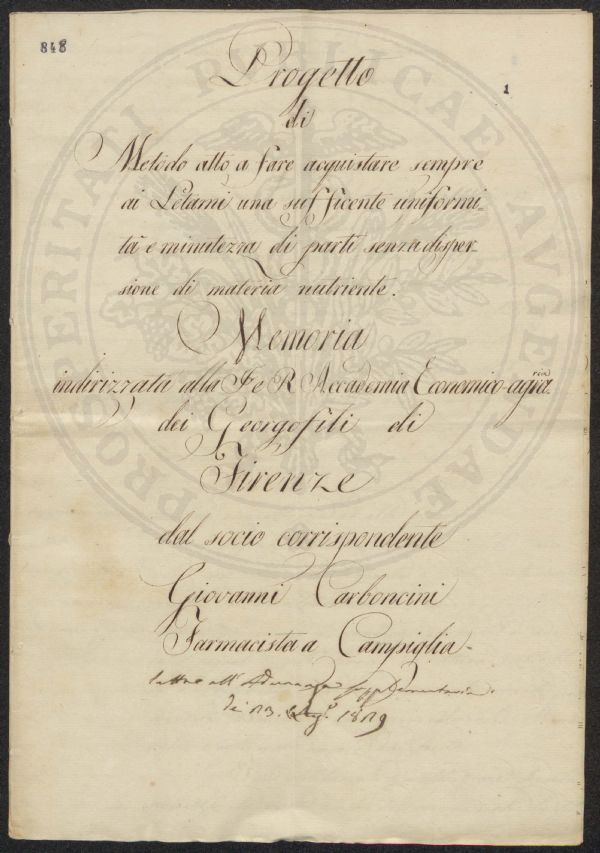 848
1
Progetto
di
Metodo atto a fare acquistare sempre
ai Letami una sufficente uniformi-
tà e minutezza di parti senza disper-
sione di materia nutriente.
Memoria
indirizzata alla I e R Accademia Economico-agra.ria
dei Georgofili di
Firenze
dal socio corrispondente
Giovanni Carboncini
Farmacista a Campiglia.
letta all'Adunanza supplementaria
de' 13. 1819
PROSPERITATI PUBLICAE AVGENDAE